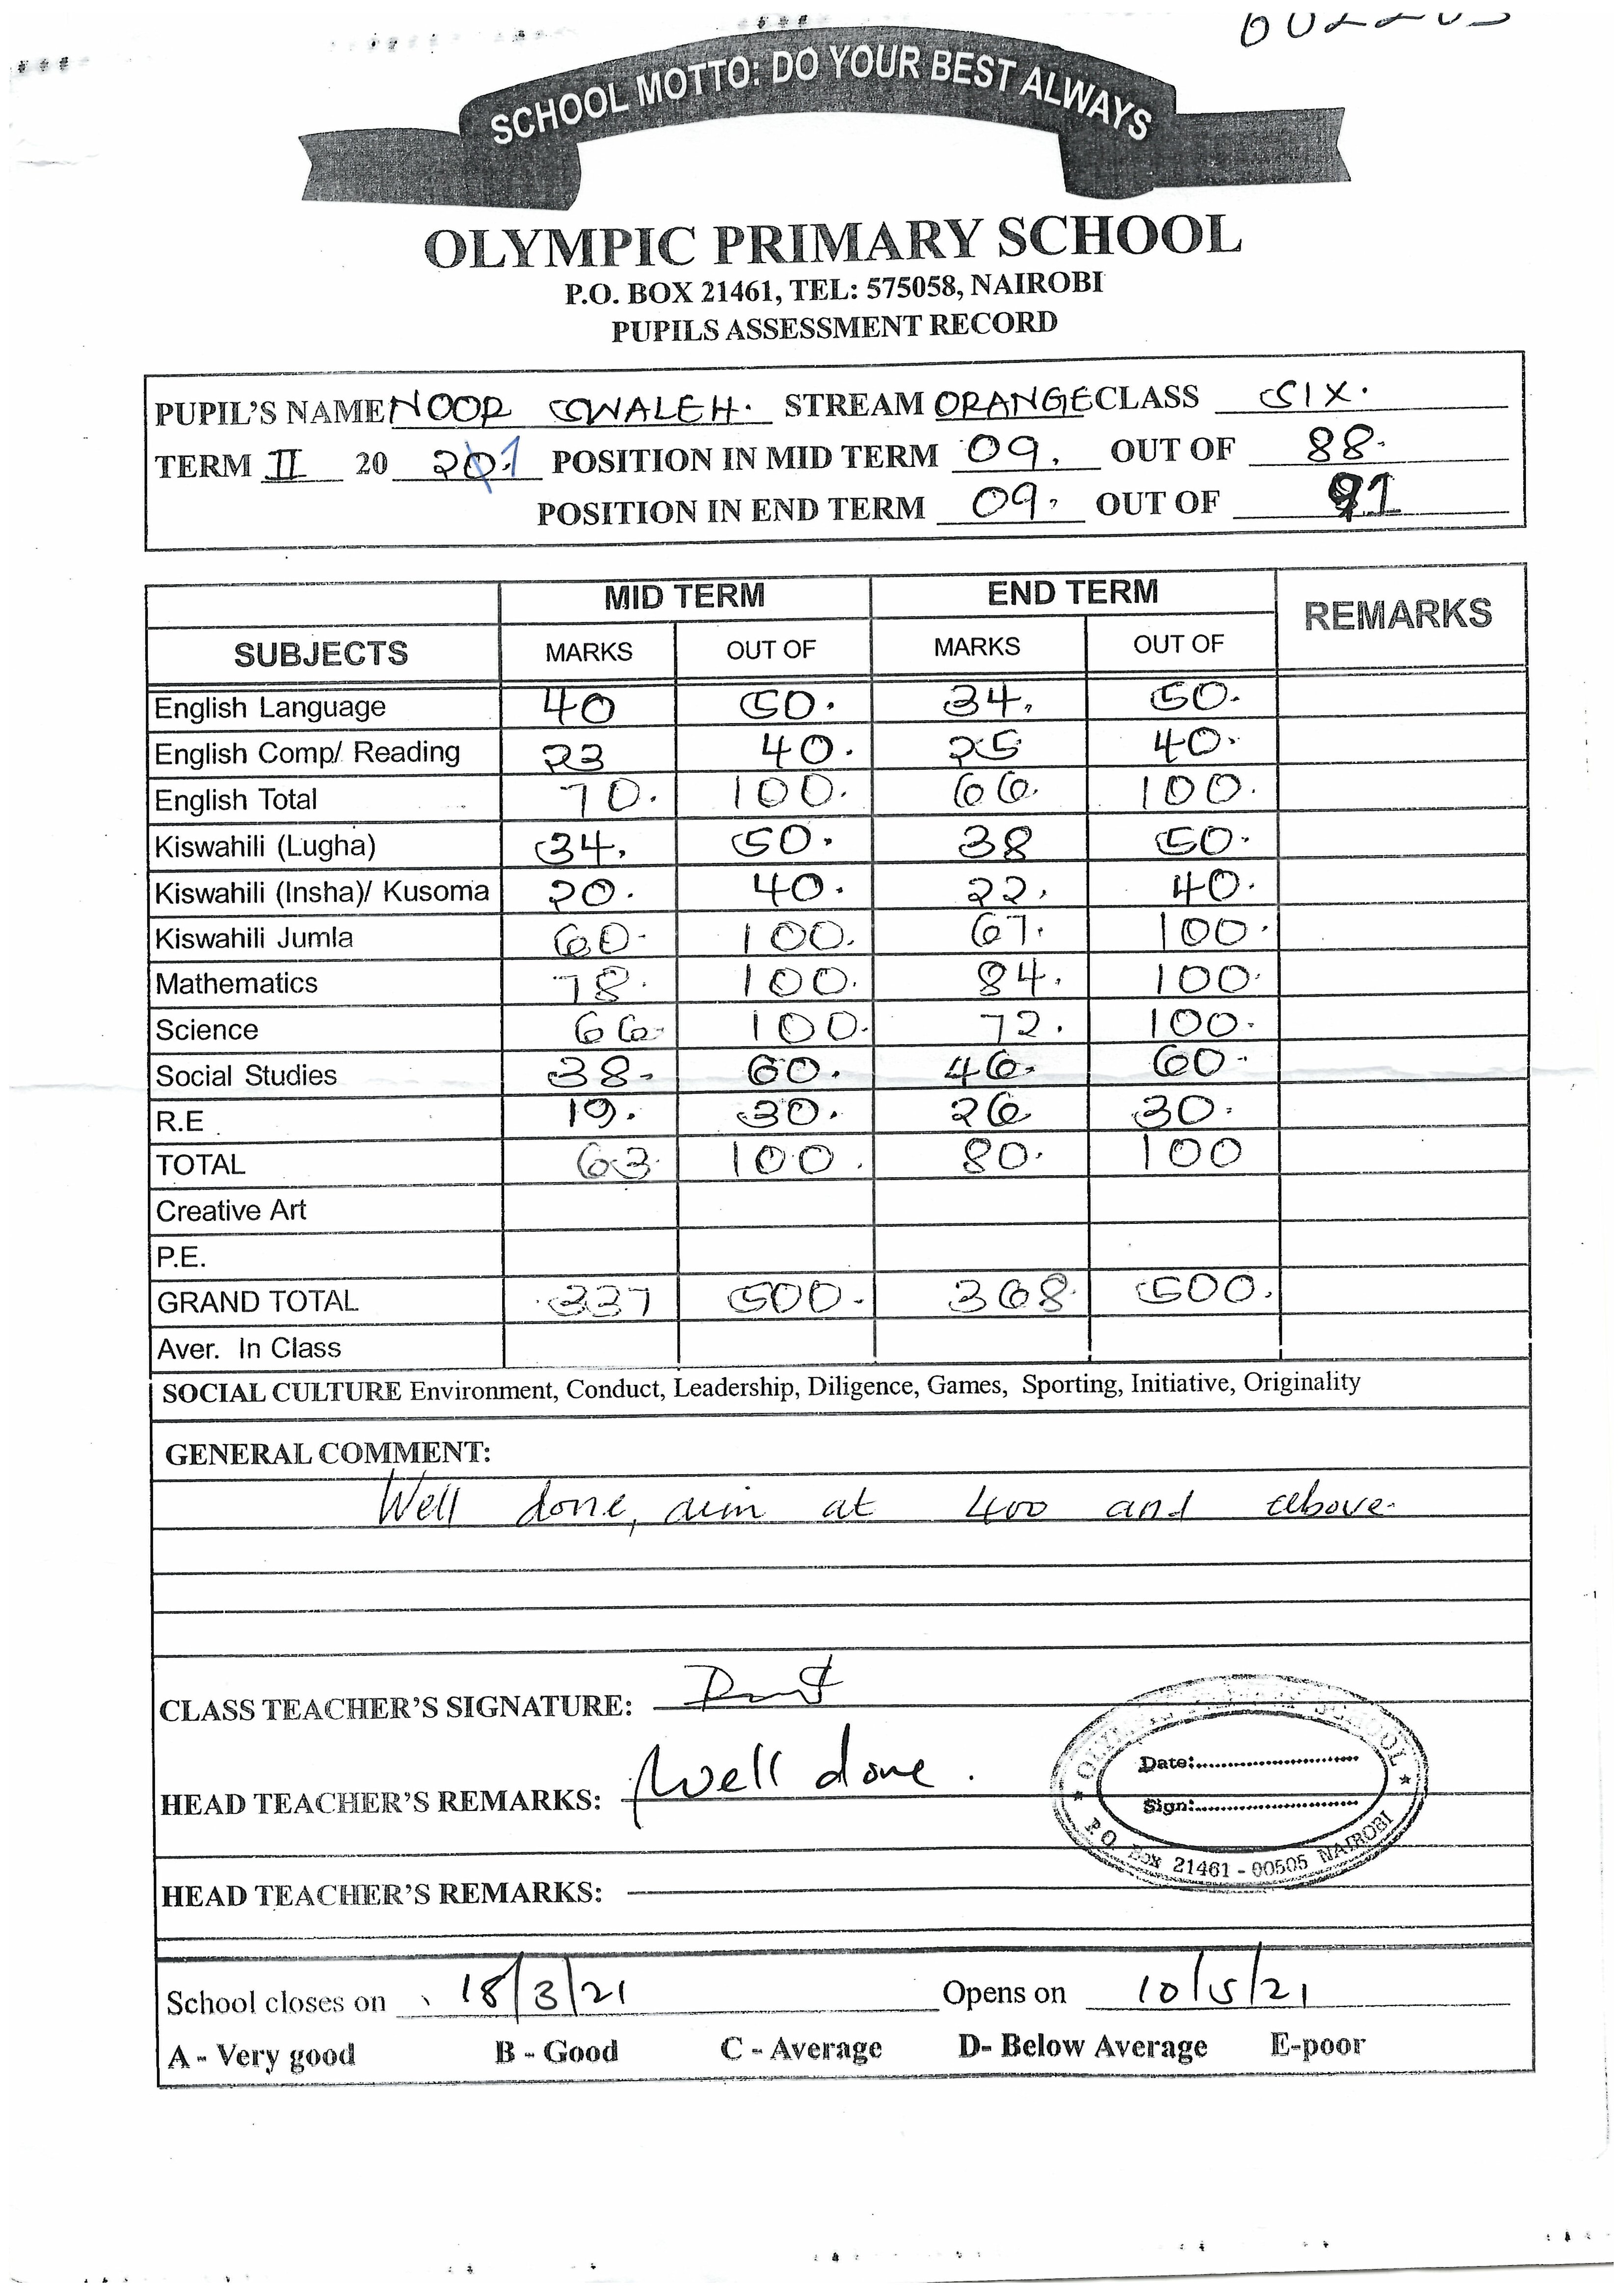 SCHOOL MOTTO: DO YOUR BEST ALWAYS
OLYMPIC PRIMARY SCHOOL
P.O. BOX 21461, TEL: 575058, NAIROBI
PUPILS ASSESSMENT RECORD
PUPIL'S NAME NOOR SWALEH. STREAM ORANGE CLASS SIX.
TERM II 20 21 POSITION IN MID TERM 09. OUT OF 88.
POSITION IN END TERM 09. OUT OF 91
MID TERM END TERM REMARKS
SUBJECTS MARKS OUT OF MARKS OUT OF
English Language 40 50. 34. 50.
English Comp/ Reading 23 40. 25 40.
English Total 70. 100. 66. 100.
Kiswahili (Lugha) 34. 50. 38 50.
Kiswahili (Insha)/ Kusoma 20. 40. 22. 40.
Kiswahili Jumla 60. 100. 67. 100.
Mathematics 78. 100. 84. 100.
Science 66. 100. 72. 100.
Social Studies 38. 60. 46. 60.
R.E 19. 30. 26 30.
TOTAL 63. 100. 80. 100
Creative Art
P.E.
GRAND TOTAL 337 500. 368. 500.
Aver. In Class
SOCIAL CULTURE Environment, Conduct, Leadership, Diligence, Games, Sporting, Initiative, Originality
GENERAL COMMENT:
Well done, aim at 400 and above.
CLASS TEACHER'S SIGNATURE:
HEAD TEACHER'S REMARKS: Well done.
OLYMPIC PRIMARY SCHOOL
Date:
Sign:
P.O. Box 21461 - 00505 NAIROBI
HEAD TEACHER'S REMARKS:
School closes on 18/3/21 Opens on 10/5/21
A - Very good B - Good C - Average D- Below Average E-poor